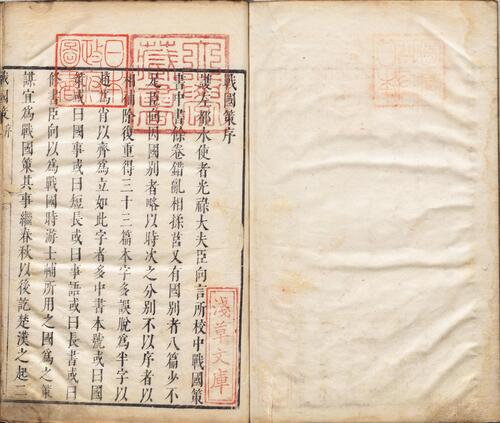 戰國策序
護左都水使者光祿大夫臣向言所校中戰國策
書中書餘卷錯亂相揉莒又有國別者八篇少不
足臣向因國別者略以時次之分別不以序者以
相補除復重得三十三篇本字多誤脫為半字以
趙為肖以齊為立如此字者多中書本號或曰國
策或曰國事或曰短長或曰事語或曰長書或曰
脩書臣向以為戰國時游士輔所用之國為之策
謀宜為戰國策其事繼春秋以後訖楚漢之起二
戰國策 序
淺草文庫
日本政府圖書